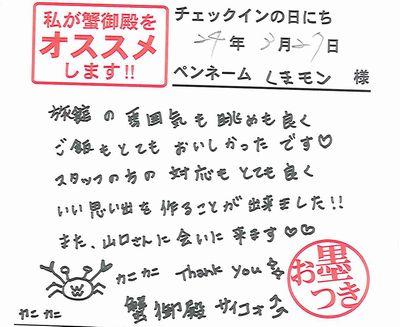 私が蟹御殿を
オススメ
します!!
チェックインの日にち
29年 3月27日
ペンネーム くまモン 様
旅館の雰囲気も眺めも良く
ご飯もとてもおいしかったです♡
スタッフの方の対応もとても良く
いい思い出を作ることが出来ました!!
また、山口さんに会いに来ます♡♡
カニカニ Thank you
カニカニ 蟹御殿 サイコォ↑↑
お墨つき